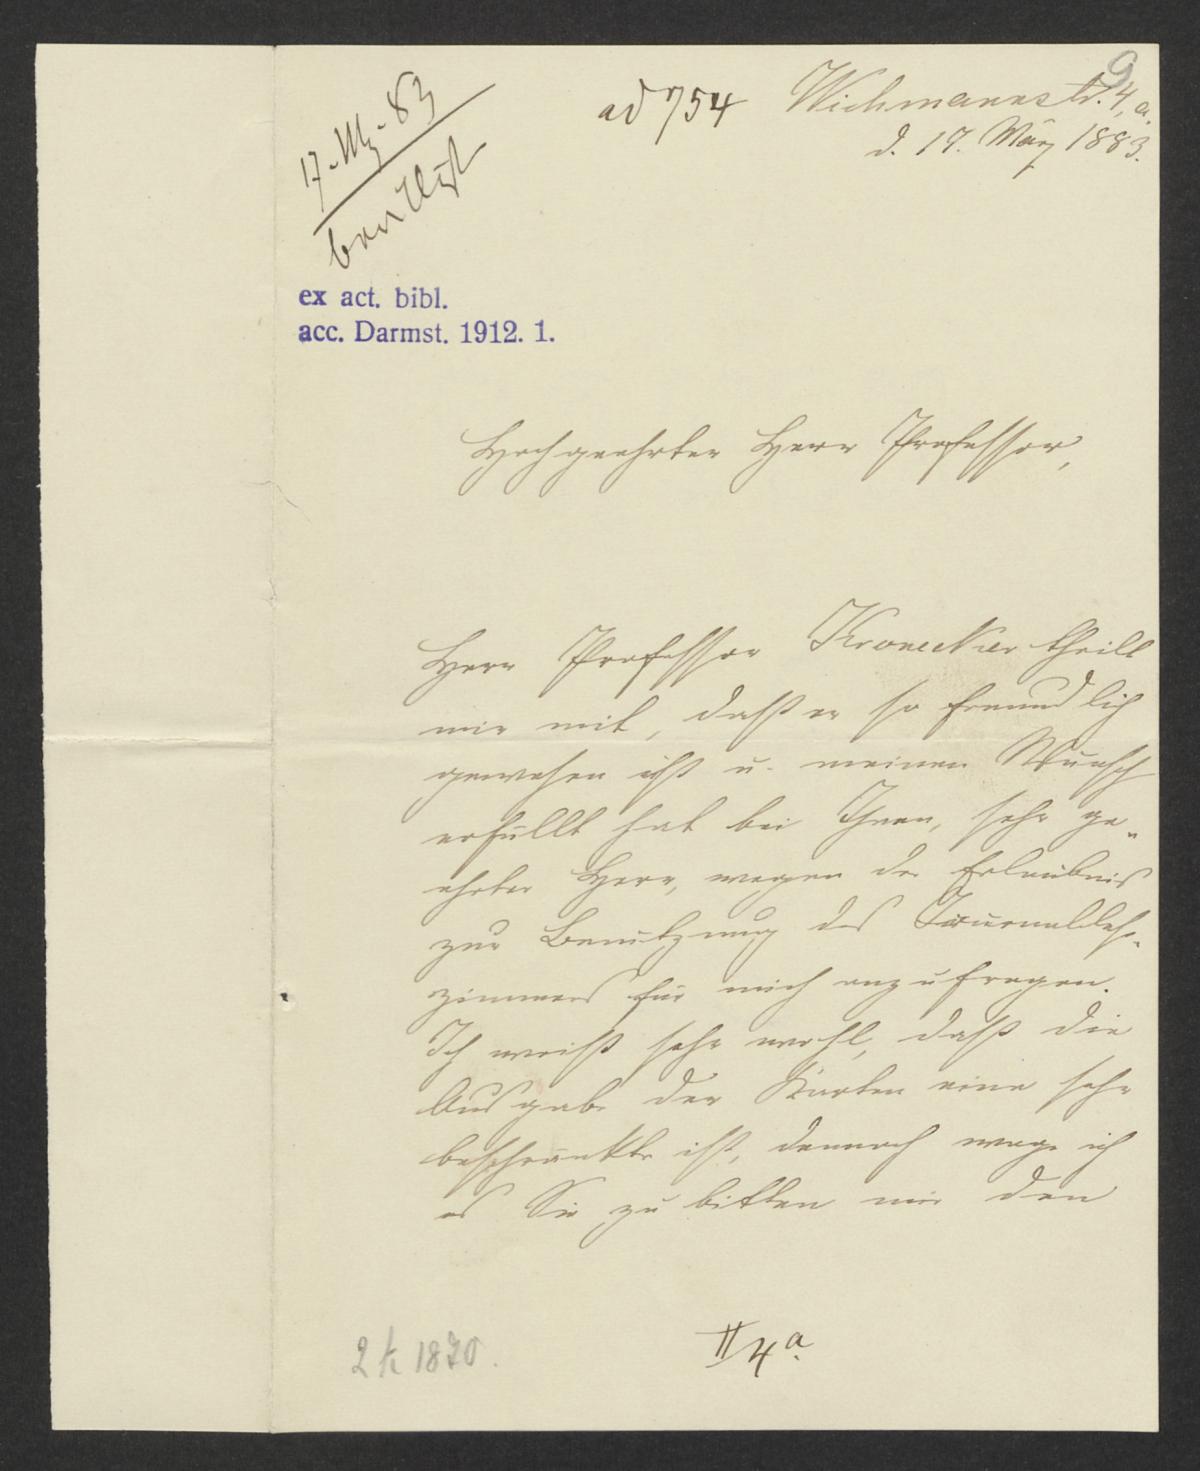 9
ad 754 Wichmannstr. 4, a.
d. 17. März 1883.
17. Mz. 83
bewilligt
ex act. bibl.
acc. Darmst. 1912. 1.
Hochgeehrter Herr Professor,
Herr Professor Kronecker theilt
mir mit, daß er so freundlich
gewesen ist u. meinen Wunsch
erfüllt hat bei Ihnen, sehr ge-
ehrter Herr, wegen der Erlaubniß
zur Benutzung des Journallese-
zimmers für mich anzufragen.
Ich weiß sehr wohl, daß die
Ausgabe der Karten eine sehr
beschränkte ist, dennoch wage ich
es Sie zu bitten mir den
II 4 a.
1870.